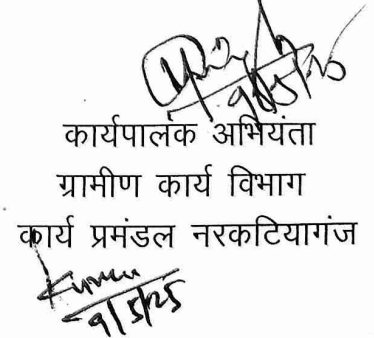 9/5/25
कार्यपालक अभियंता
ग्रामीण कार्य विभाग
कार्य प्रमंडल नरकटियागंज
9/5/25